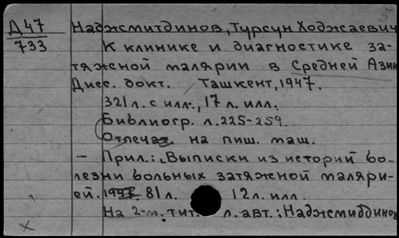 Д 47
733
Наджмитдинов, Турсун Ходжаевич
К клинике и диагностике за-
тяжной малярии в Средней Азии
Дисс. докт. Ташкент, 1947.
321 л. с илл., 17 л. илл.
Библиогр. л. 225-259.
Отпечат. на пиш. маш.
— Прил.: Выписки из историй бо-
лезни больных затяжной маляри-
ей. 81 л. 12 л. илл.
На 2-м. тит. л. авт.: Наджмиддинов